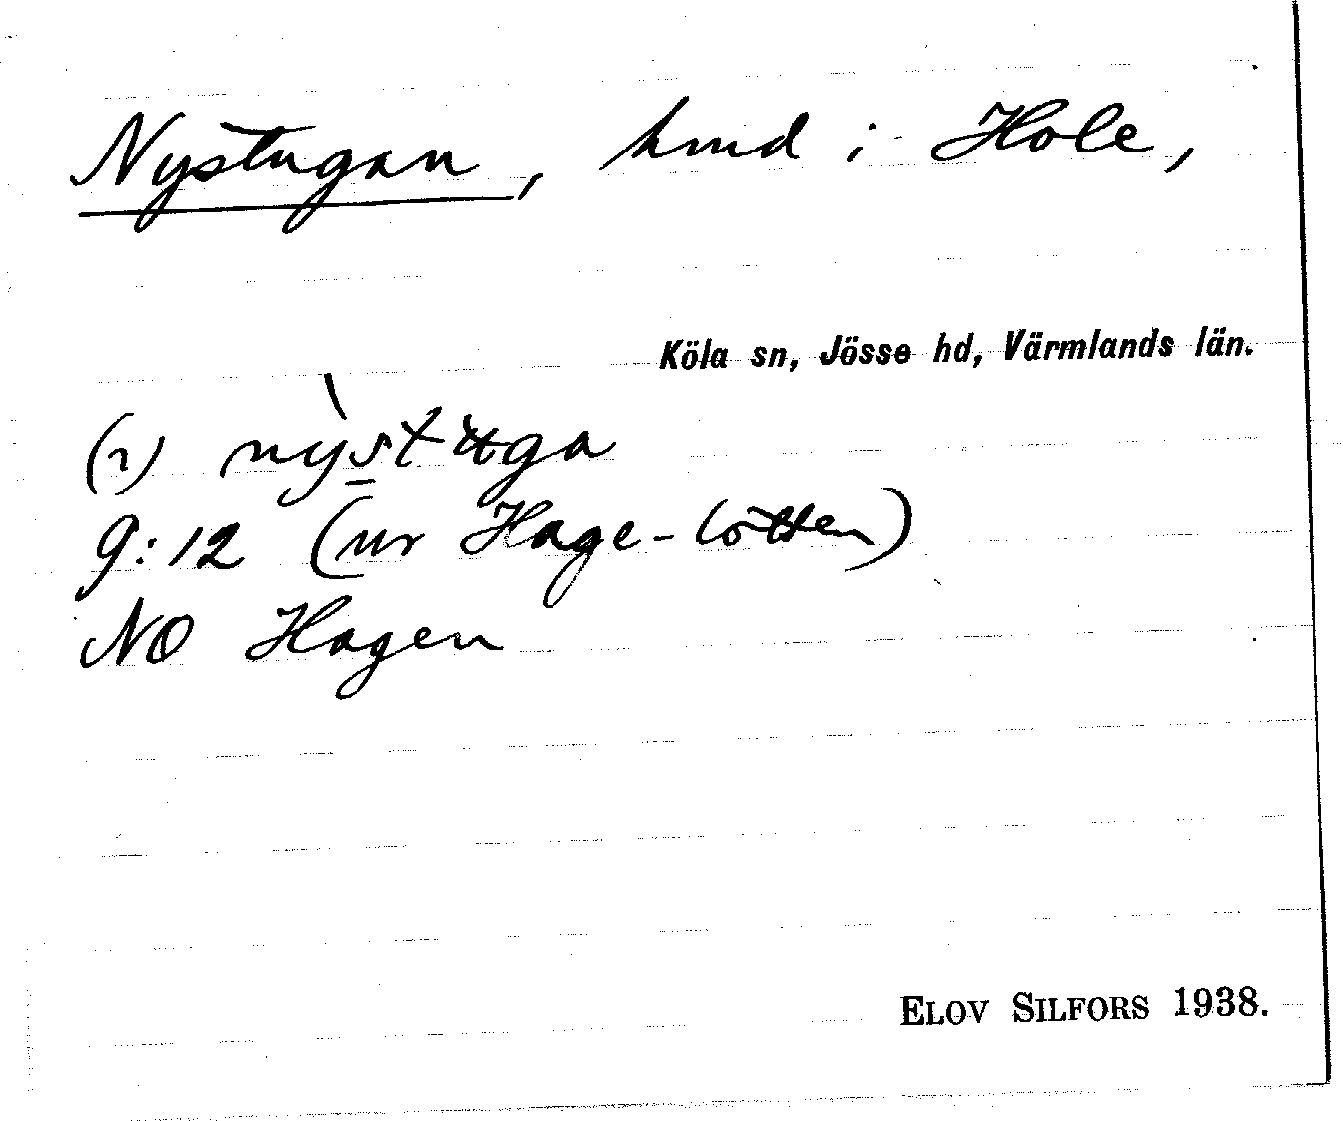 Nystugan, hmd i Hole,
Köla sn, Jösse hd, Värmlands län.
(2) nỳstuga
9:12 (ur Hage-lotten)
NO Hagen
ELOV SILFORS 1938.